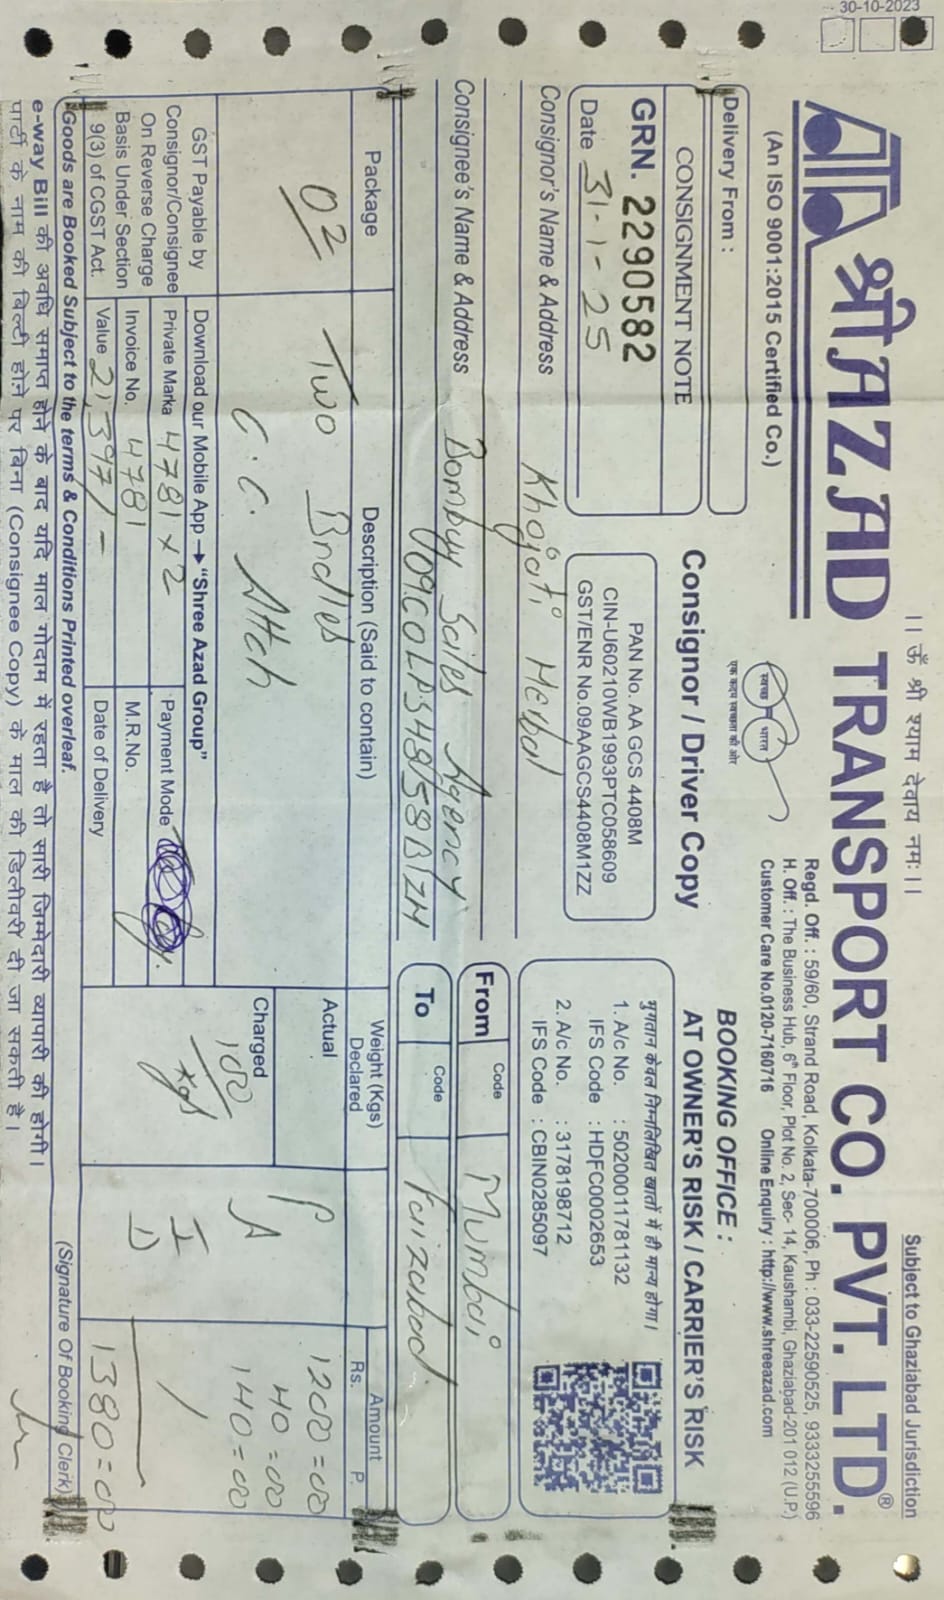 30-10-2023
।। ऊँ श्री श्याम देवाय नमः।।
Subject to Ghaziabad Jurisdiction
श्री AZAD TRANSPORT CO. PVT. LTD.®
(An ISO 9001:2015 Certified Co.)
स्वच्छ भारत
एक कदम स्वच्छता की ओर
Regd. Off. : 59/60, Strand Road, Kolkata-700006, Ph : 033-22590525, 9333255596
H. Off. : The Business Hub, 6th Floor, Plot No. 2, Sec- 14, Kaushambi, Ghaziabad-201 012 (U.P.)
Customer Care No.0120-7160716 Online Enquiry : http://www.shreeazad.com
Delivery From :
BOOKING OFFICE :
Consignor / Driver Copy
AT OWNER'S RISK / CARRIER'S RISK
CONSIGNMENT NOTE
GRN. 2290582
Date 31-1-25
PAN No. AA GCS 4408M
CIN-U60210WB1993PTC058609
GST/ENR No.09AAGCS4408M1ZZ
भुगतान केवल निम्नलिखित खातों में ही मान्य होगा।
1. A/c No. : 50200011781132
IFS Code : HDFC0002653
2. A/c No. : 3178198712
IFS Code : CBIN0285097
Consignor's Name & Address Khojati
Consignee's Name & Address Bombay Sales Agency
From Code Mumbai
To Code Faizabad
Package Description (Said to contain) Weight (Kgs) Declared Amount Rs. P.
02 Two Bndles
C.C. Attch
Actual
Charged
100 kgs
P 1200=00
A 40=00
I 140=00
D
1380=00
GST Payable by
Consignor/Consignee
On Reverse Charge
Basis Under Section
9(3) of CGST Act.
Download our Mobile App → "Shree Azad Group"
Private Marka 4781 x 2 Payment Mode
Invoice No. 4781 M.R.No.
Value 21,397/- Date of Delivery
Goods are Booked Subject to the terms & Conditions Printed overleaf.
(Signature Of Booking Clerk)
e-way Bill की अवधि समाप्त होने के बाद यदि माल गोदाम में रहता है तो सारी जिम्मेदारी व्यापारी की होगी।
पार्टी के नाम की बिल्टी होने पर बिना (Consignee Copy) के माल की डिलीवरी दी जा सकती है।